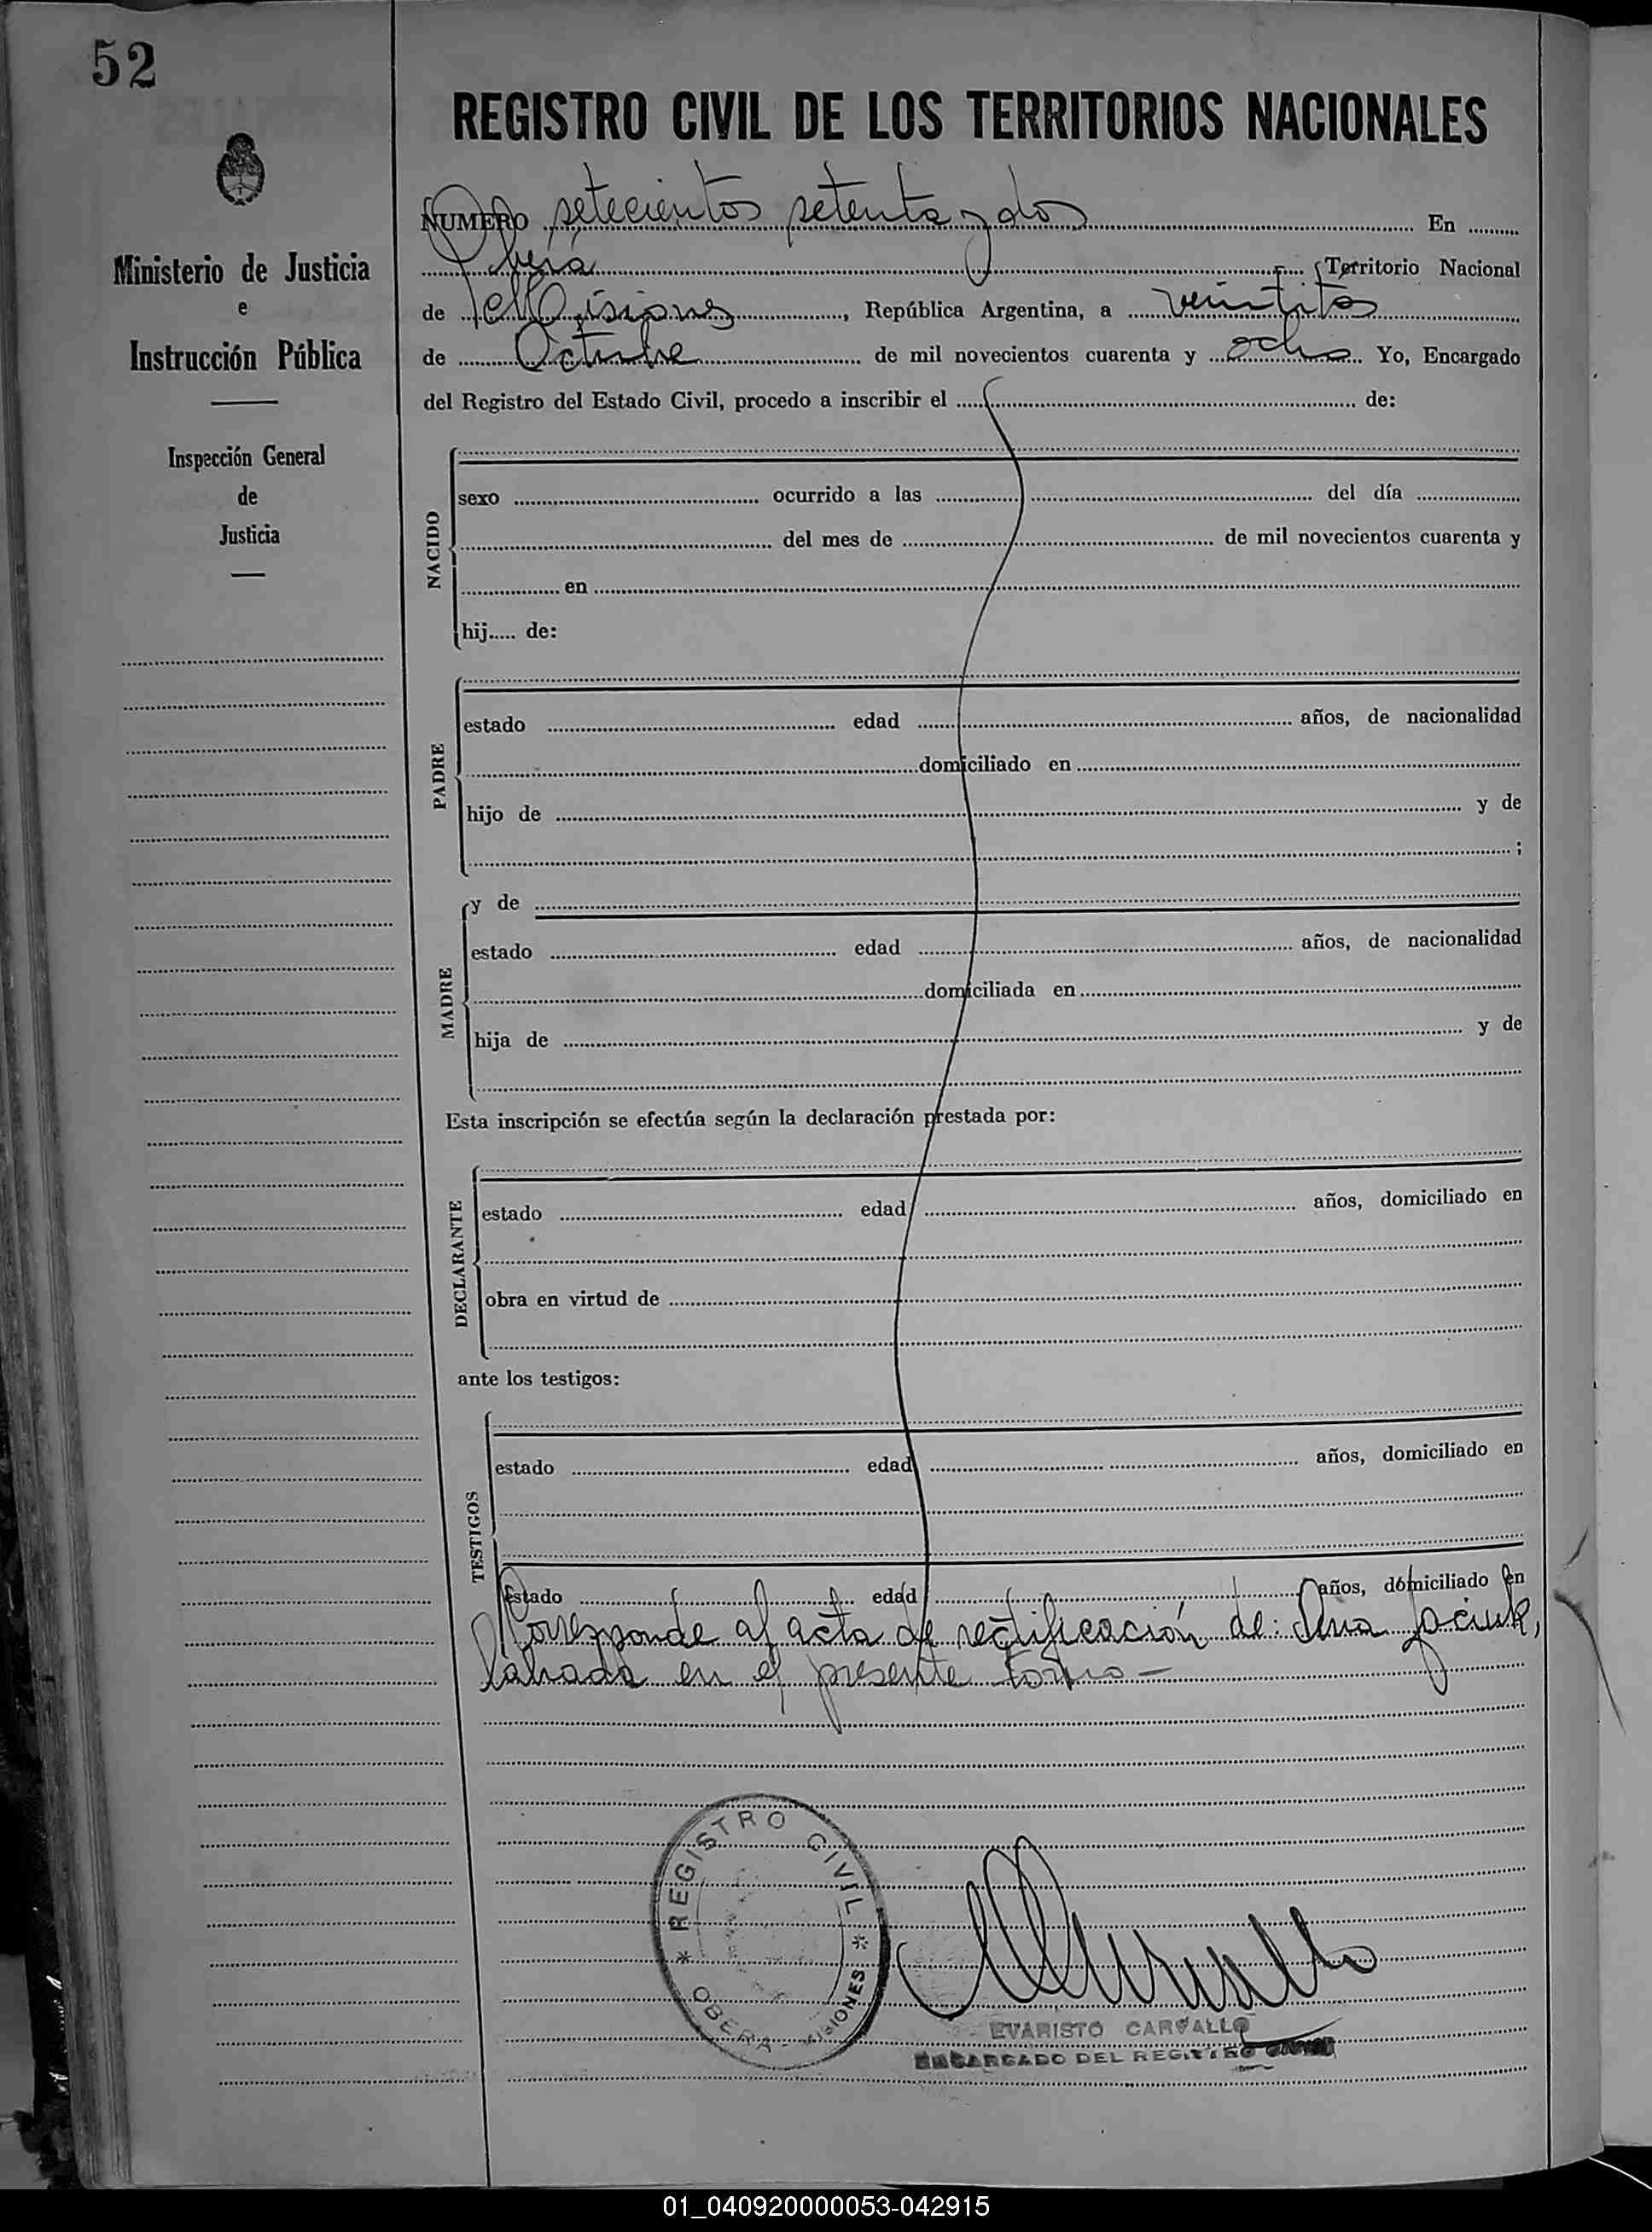 52
REGISTRO CIVIL DE LOS TERRITORIOS NACIONALES
Ministerio de Justicia
e
Instrucción Pública
Inspección General
de
Justicia
NUMERO setecientos setenta y dos En
Oberá Territorio Nacional
de Misiones, República Argentina, a
de Octubre de mil novecientos cuarenta y ocho Yo, Encargado
del Registro del Estado Civil, procedo a inscribir el de:
NACIDO
sexo ocurrido a las del día
del mes de de mil novecientos cuarenta y
en
hij..... de:
PADRE
estado edad años, de nacionalidad
domiciliado en
hijo de y de
;
MADRE
y de
estado edad años, de nacionalidad
domiciliada en
hija de y de
Esta inscripción se efectúa según la declaración prestada por:
DECLARANTE
estado edad años, domiciliado en
obra en virtud de
ante los testigos:
TESTIGOS
estado edad años, domiciliado en
estado edad años, domiciliado en
Corresponde al acta de rectificación de: Ana
labrada en el presente tomo-
REGISTRO CIVIL
* OBERA - MISIONES *
EVARISTO CARVALLO
ENCARGADO DEL REGISTRO
01_040920000053-042915